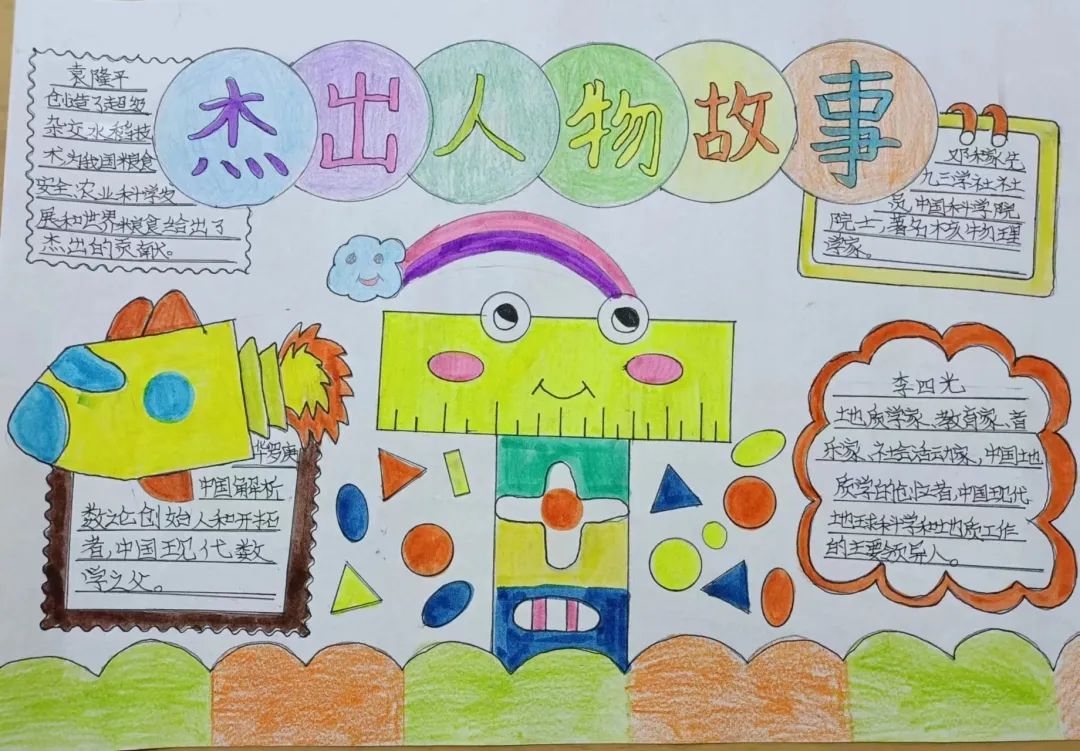 杰出人物故事
袁隆平
创造了超级
杂交水稻技
术为我国粮食
安全,农业科学发
展和世界粮食给出了
杰出的贡献。
邓稼先
九三学社社
员,中国科学院
院士,著名核物理
学家。
华罗庚
中国解析
数论创始人和开拓
者,中国现代数
学之父。
李四光
地质学家、教育家、音
乐家、社会活动家,中国地
质学的创立者,中国现代
地球科学和地质工作
的主要领导人。